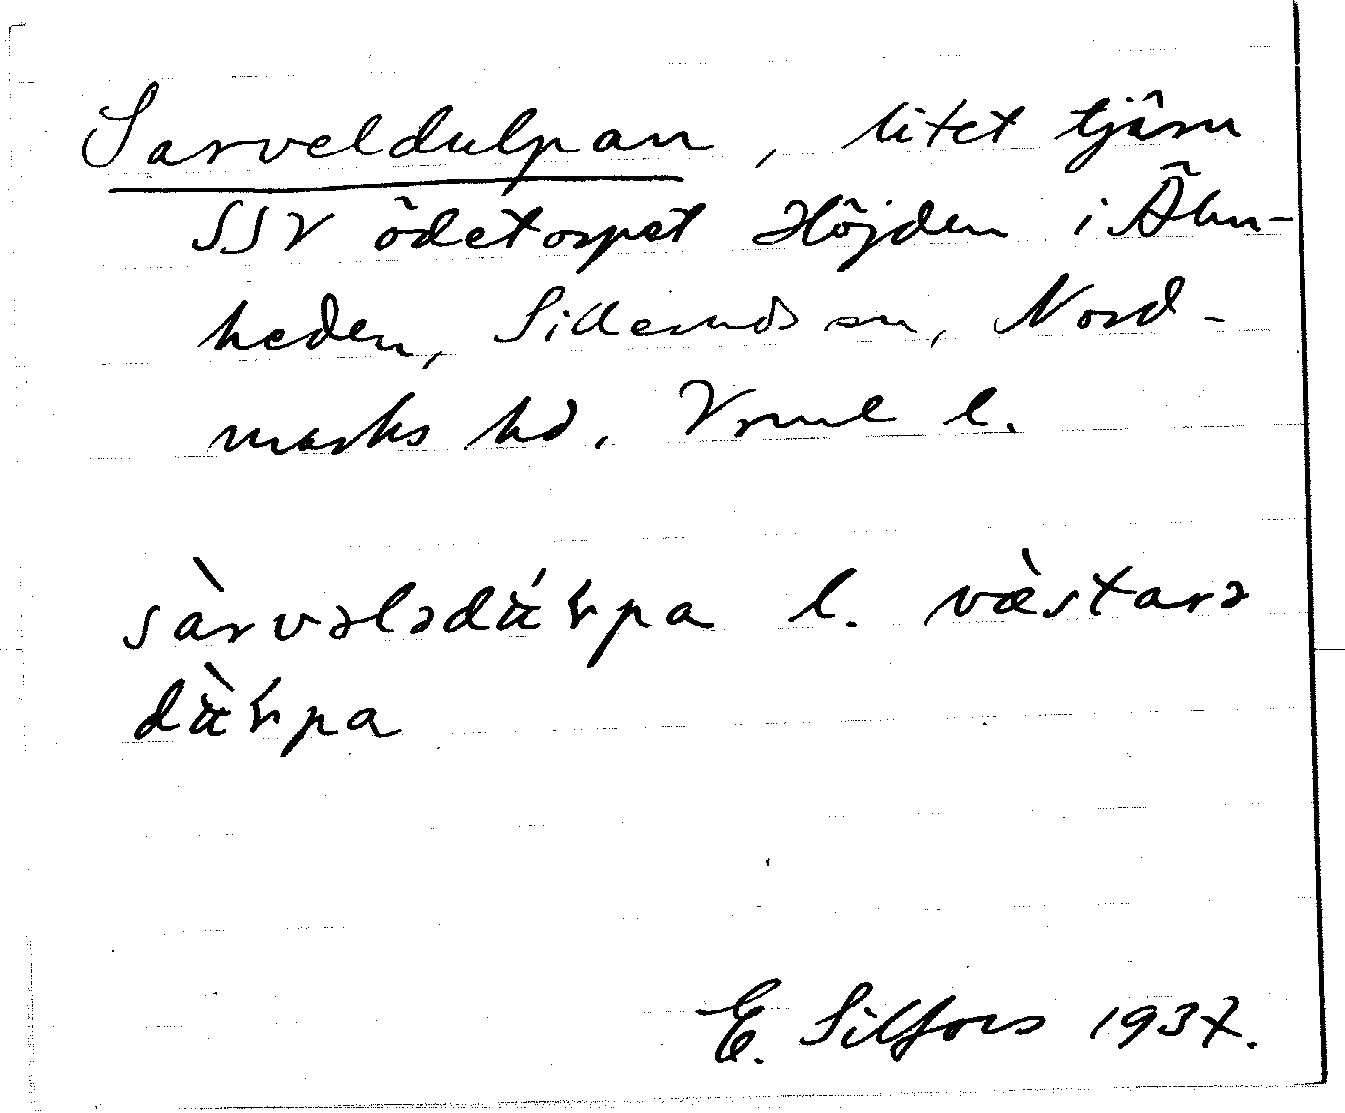 Sarveldulpan, litet tjärn
SSV ödetorpet Höjden i Älen-
heden, Silleruds sn, Nord-
marks hd. Vrml l.
sàrvələdúɫpa l. vàstarə
dùɫpa
E. Silfors 1937.